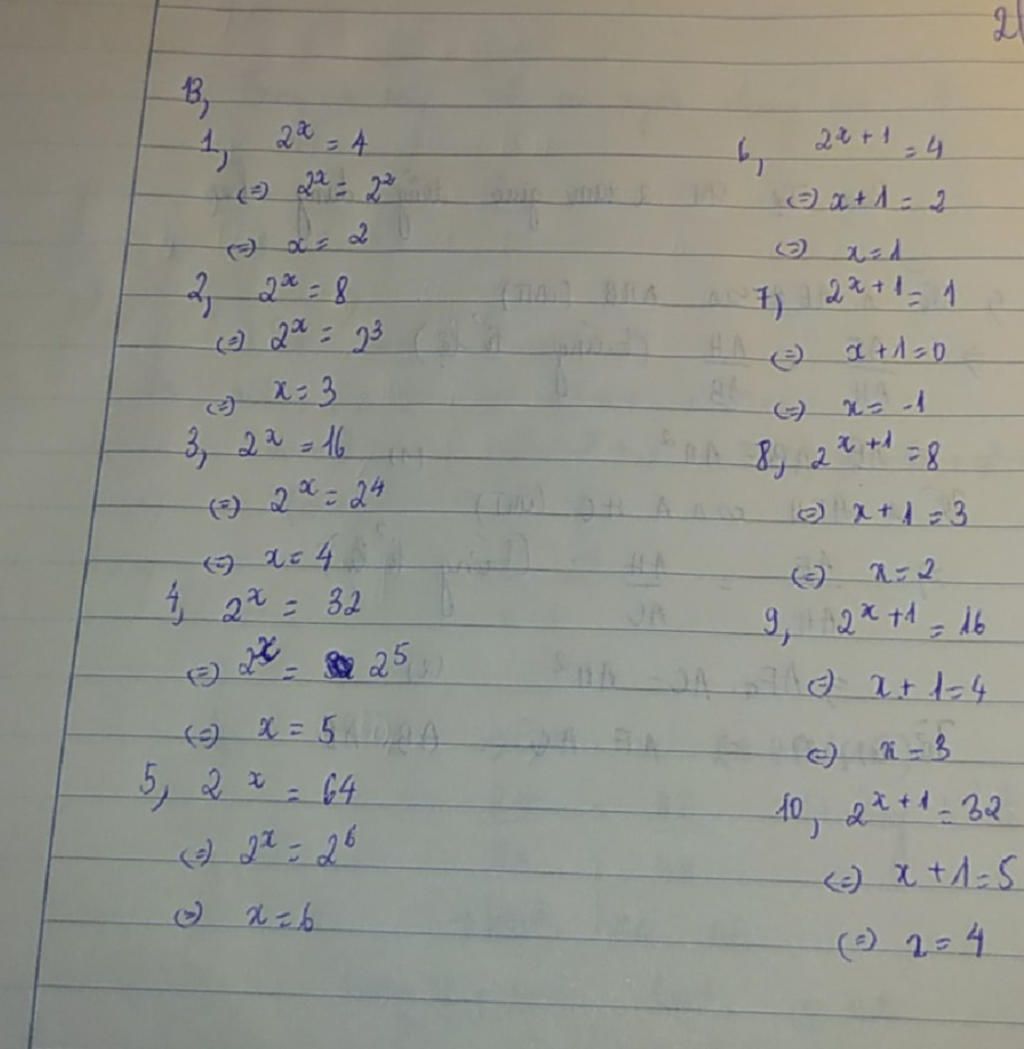 2
B,
1, 2^x = 4
(=) 2^x = 2^2
(=) x = 2
2, 2^x = 8
(=) 2^x = 2^3
(=) x = 3
3, 2^x = 16
(=) 2^x = 2^4
(=) x = 4
4, 2^x = 32
(=) 2^x = 2^5
(=) x = 5
5, 2^x = 64
(=) 2^x = 2^6
(=) x = 6
6, 2^{x+1} = 4
(=) x + 1 = 2
(=) x = 1
7, 2^{x+1} = 1
(=) x + 1 = 0
(=) x = -1
8, 2^{x+1} = 8
(=) x + 1 = 3
(=) x = 2
9, 2^{x+1} = 16
(=) x + 1 = 4
(=) x = 3
10, 2^{x+1} = 32
(=) x + 1 = 5
(=) x = 4